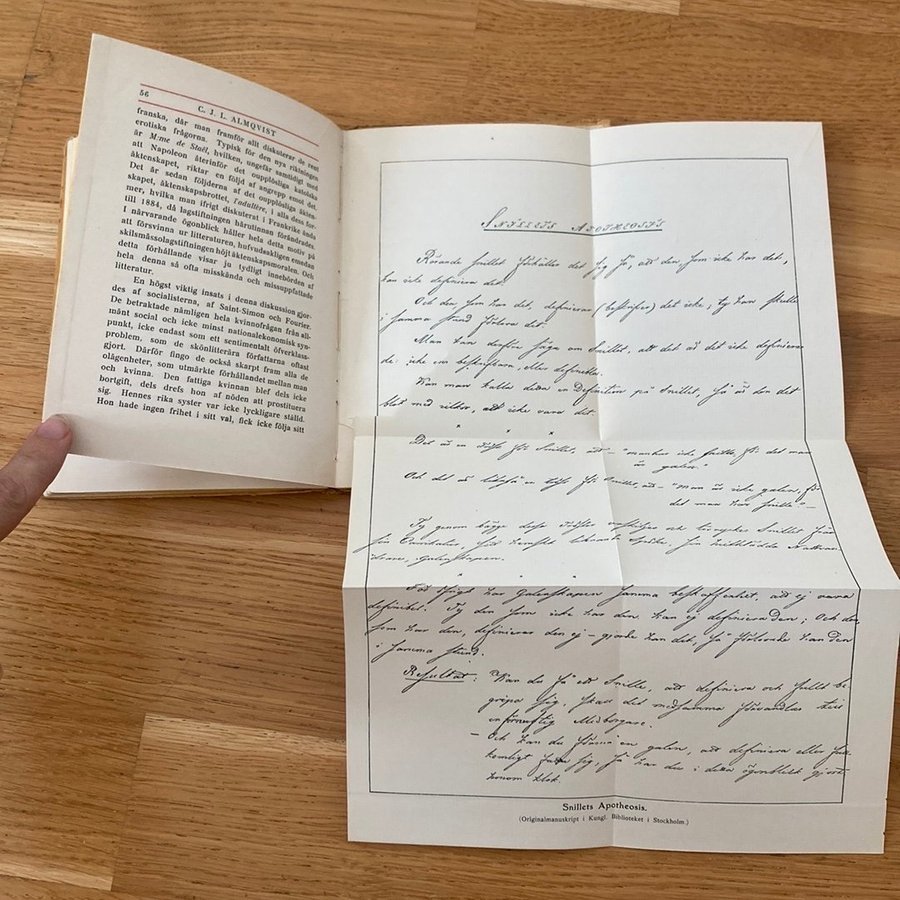 56
C. J. L. ALMQVIST
franska, där man framför allt diskuterar de rent
erotiska frågorna. Typisk för den nya riktningen
är M:me de Staël, hvilken, ungefär samtidigt med
att Napoleon återinför det oupplösliga katolska
äktenskapet, riktar en följd af angrepp emot det.
Det är sedan följderna af det oupplösliga äkten-
skapet, äktenskapsbrottet, l'adultère, i alla dess for-
mer, hvilka man ifrigt diskuterat i Frankrike ända
till 1884, då lagstiftningen härutinnan förändrades.
I närvarande ögonblick håller hela detta motiv på
att försvinna ur litteraturen, hufvudsakligen emedan
skilsmässolagstiftningen höjt äktenskapsmoralen. Och
detta förhållande visar ju tydligt innebörden af
hela denna så ofta misskända och missuppfattade
litteratur.
En högst viktig insats i denna diskussion gjor-
des af socialisterna, af Saint-Simon och Fourier.
De betraktade nämligen hela kvinnofrågan från all-
mänt social och icke minst nationalekonomisk syn-
punkt, icke endast som ett sentimentalt öfverklass-
problem, som de skönlitterära författarna oftast
gjort. Därför fingo de också skarpt fram alla de
olägenheter, som utmärkte förhållandet mellan man
och kvinna. Den fattiga kvinnan blef dels icke
bortgift, dels drefs hon af nöden att prostituera
sig. Hennes rika syster var icke lyckligare ställd.
Hon hade ingen frihet i sitt val, fick icke följa sitt
SNILLETS APOTHEOSIS
Rörande snillet förhåller det sig så, att den, som icke har det,
kan icke definiera det.
Och den, som har det, definierar (beskrifver) det icke; ty han skulle
i samma stund förlora det.
Man kan derföre säga om Snillet, att det är det icke definiera-
de: icke en beskrifvare, eller definieller.
Kan man kalla detta en Definition på Snillet, så är den det
blott med vilkor, att icke vara det.
* * *
Det är en tröst för Snillet, att "man har icke snille, för det man
är galen."
Och det är likaså en tröst för Snillet, att "man är icke galen, för
det man har snille."—
Ty genom bägge dessa tröster
* * *
har Galenskapen samma beskaffenhet, att ej vara
definibel. Ty den som icke har den, kan ej definiera den; Och den
som har den, definierar den ej — gjorde han det, så förlorade han den
i samma stund.
Resultat: Kan du få ett Snille, att definiera och fullt be-
gripa sig, skall det medsamma förvandlas till
en förnuftig Medborgare.
— Och kan du förmå en galen, att definiera eller full-
komligt fatta sig, så har du i detta ögonblick gjort
honom klok.
Snillets Apotheosis.
(Originalmanuskript i Kungl. Biblioteket i Stockholm.)